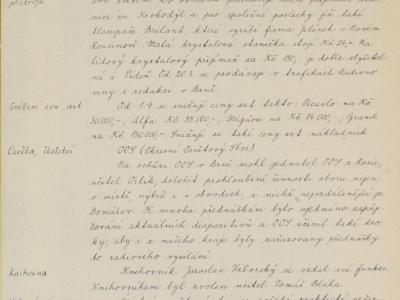 přístroje
nice zn. Krokodýl a pro společné poslechy již také
tlampače Brilant, které vyrábí firma Jelínek v Novém
Rousínově. Malá krystalová stanička stojí Kč 24,-. Na
lidový krystalový přijímač za Kč 190,- je dobře slyšitel-
ná i Vídeň. Od 20.3. se prodávají v trafikách Radiono-
viny s redakcí v Brně.
Snížení cen aut
Od 1.9. se snižují ceny aut takto: Piccolo na Kč
30.000,-, Alfa Kč 55.000,-, Mignon na Kč 74.000,-, Grand
na Kč 130.000.-. Snižují se také ceny aut nákladních.
Osvěta, školství
OOS (Okresní Osvětový Sbor)
Na schůzi OOS v Brně mohl jednatel OOS z Rosic,
učitel Cilek, doložit prohloubení činnosti sboru nejen
v místě, nýbrž i v obvodech, z nichž nejvzdálenější je
Domašov. K mnoha přednáškám bylo ujednáno zapůj-
čování aktuálních diapositivů a OOS učinil také kro-
ky, aby i z našeho kraje byly zařazovány přednášky
do radiového vysílání.
Knihovna
Knihovník Jaroslav Táborský se vzdal své funkce.
Knihovníkem byl zvolen učitel Tomáš Blaha.